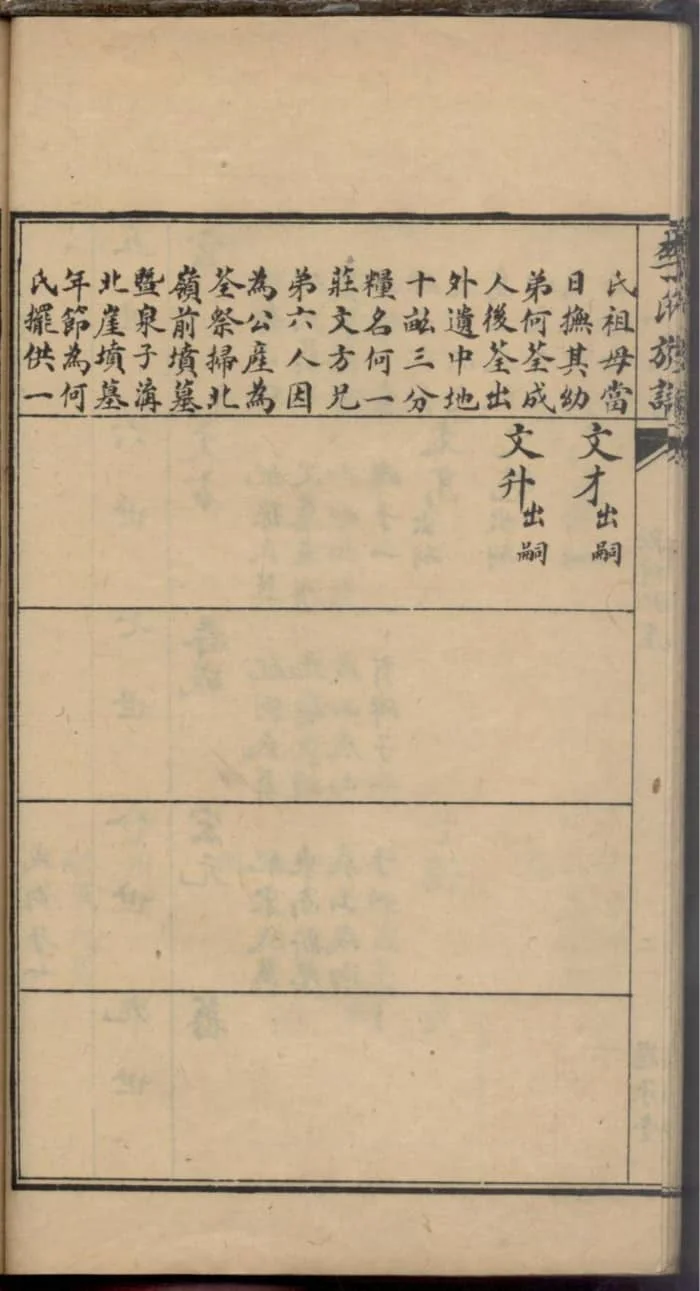 李氏族譜
氏祖母當
日撫其幼
弟何荃成
人後荃出
外遺中地
十畝三分
糧名何一
莊文方兄
弟六人因
為公產為
荃祭掃北
嶺前墳墓
暨泉子溝
北崖墳墓
年節為何
氏擺供一
文才出嗣
文升出嗣